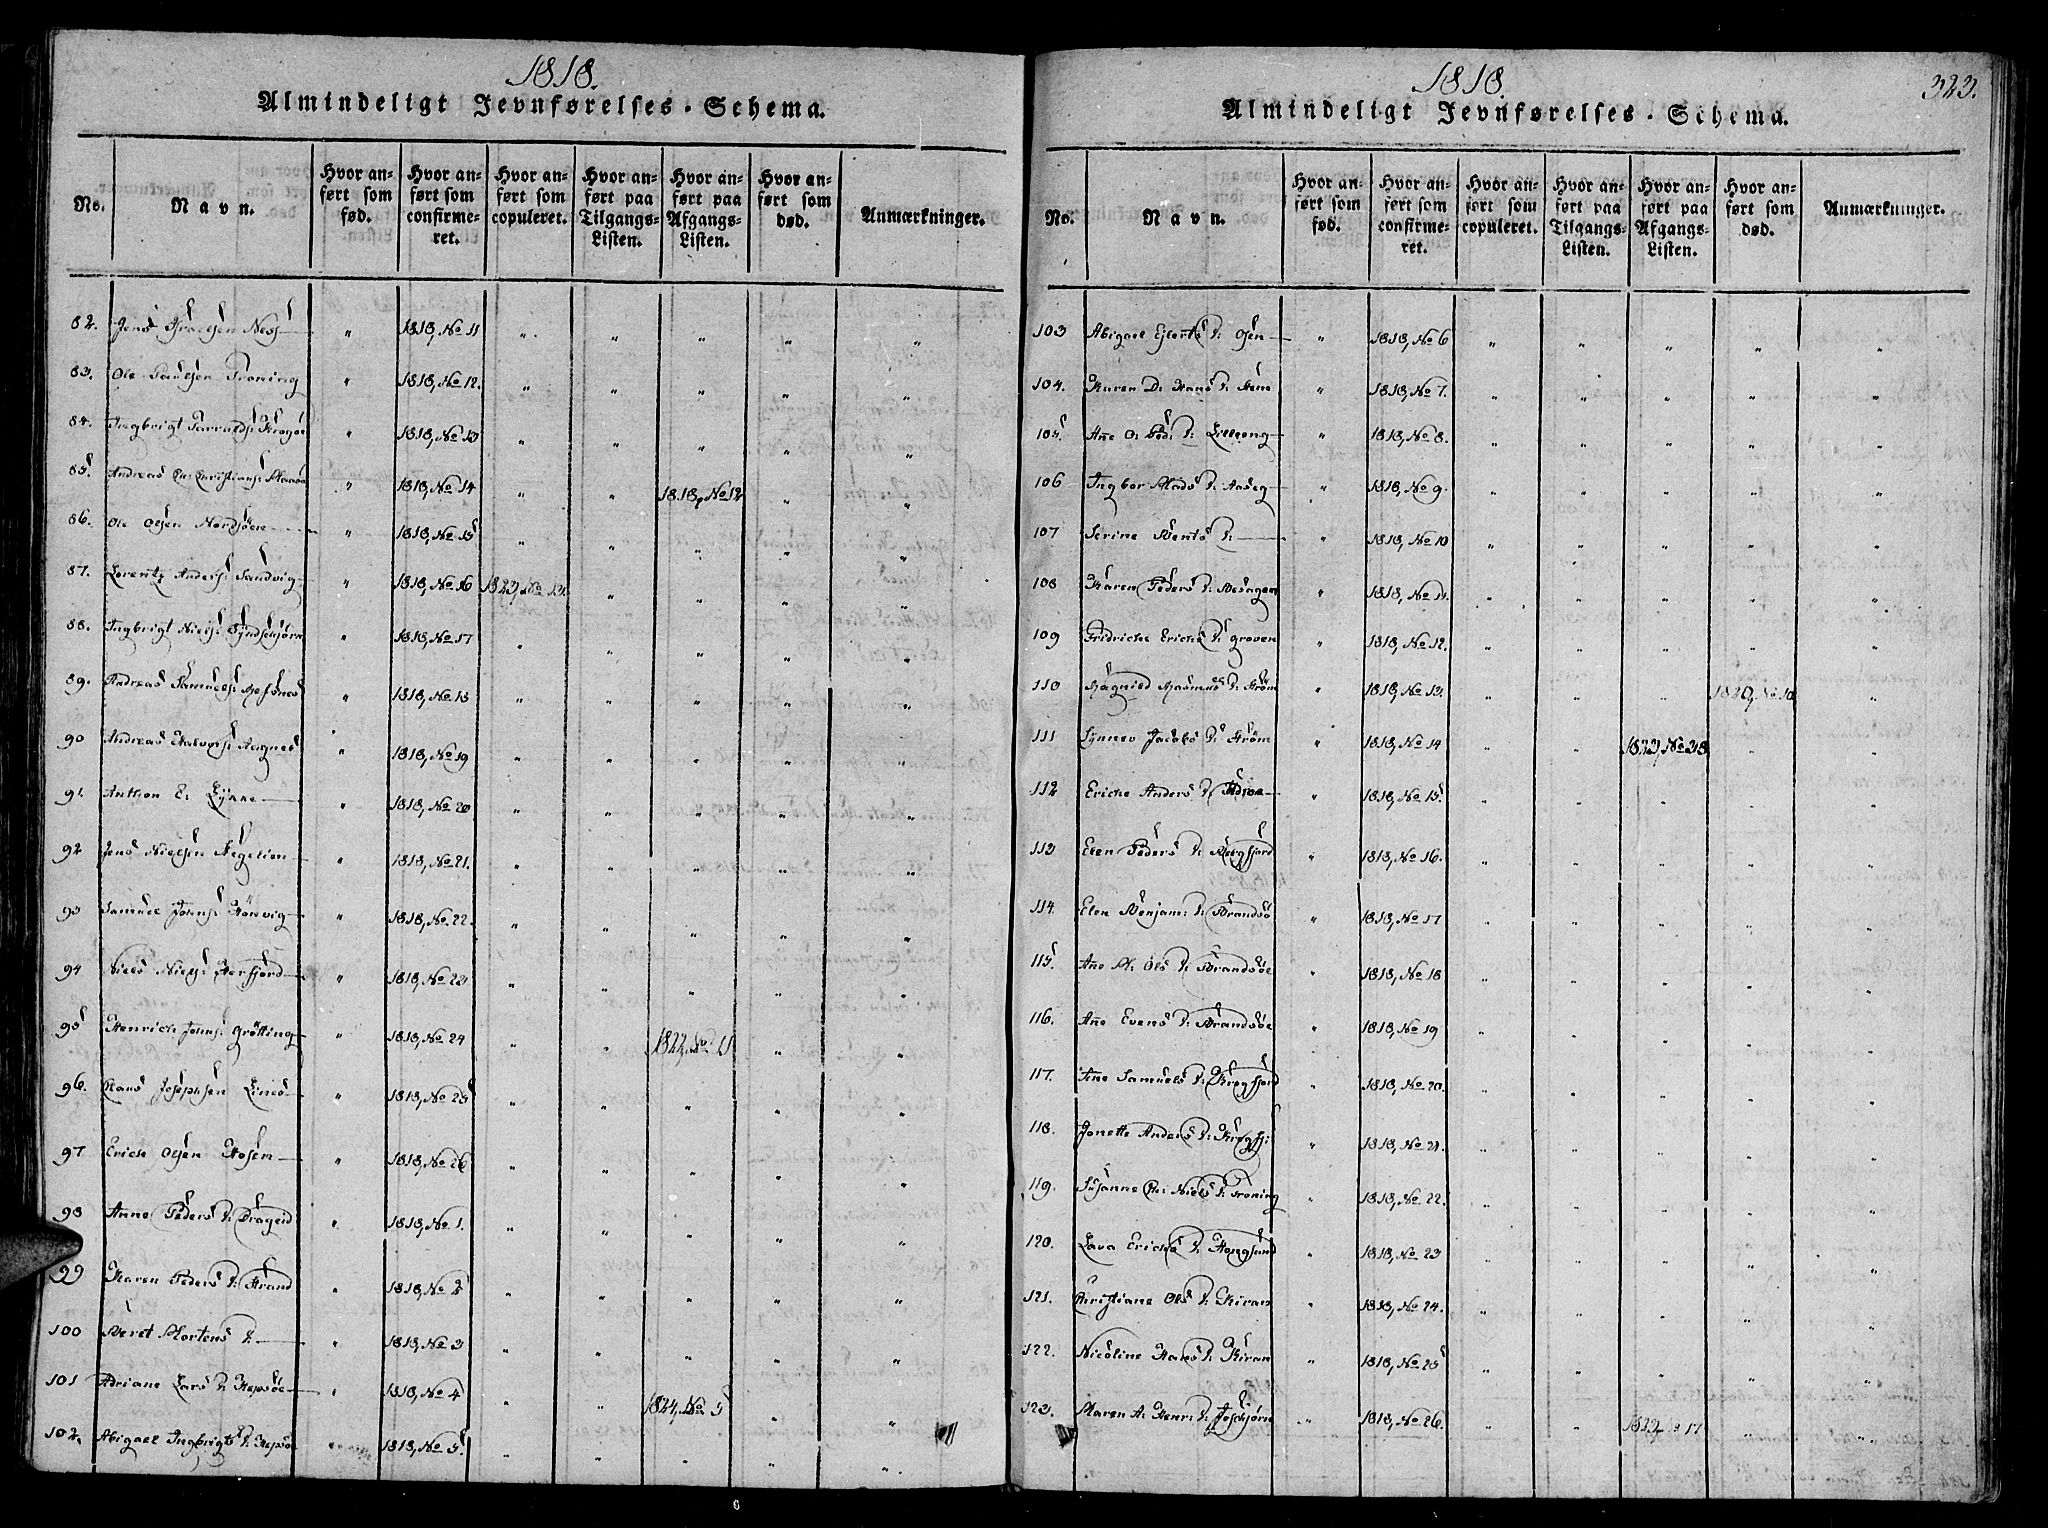 1818.
Almindeligt Jevnførelses-Schema.
No.
Navn.
Hvor anført som fød.
Hvor anført som confirmeret.
Hvor anført som copuleret.
Hvor anført paa Tilgangs-Listen.
Hvor anført paa Afgangs-Listen.
Hvor anført som død.
Anmærkninger.
82. Jens Israelsen Ness " 1818, No 11 " " " " "
83. Ole Paulsen Troning " 1818, No 12. " " " " "
84. Ingbrigt " 1818, No 13 " " " " "
85. Andreas Chr. Christians: " 1818, No 14 " " 1818, No 12 " "
86. Ole Olsen Nordsöen " 1818, No 15 " " " " "
87. Lorentz Anders: Sandvig " 1818, No 16 1823, No 13. " " " "
88. Ingbrigt Niels: " 1818, No 17 " " " " "
89. Andreas Samuels: " 1818, No 18 " " " " "
90 Andreas Halvors: Aargnes " 1818, No 19 " " " " "
91. Anthon E: Lynne " 1818, No 20 " " " " "
92 Jens Nielsen Hegelien " 1818, No 21. " " " " "
93 Samuel Johns: Hönvig " 1818, No 22. " " " " "
94 Niels Niels: Herfjord " 1818, No 23 " " " " "
95 Henrich Johns: Grötting " 1818, No 24 " " 1822, No 11 " "
96. Claus Josephsen Lines " 1818, No 25 " " " " "
97 Erich Olsen Hosen " 1818, No 26 " " " " "
98 Anne Peders D: Drageid " 1818, No 1. " " " " "
99 Karen Peders D: Strand " 1818, No 2 " " " " "
100 Beret Mortens D: " 1818, No 3 " " " " "
101 Adriane Lars D: Hepsöe " 1818, No 4 " " 1824, No 5 " "
102. Abigael Ingbrigts D: Hepsöe " 1818, No 5 " " " " "
1818.
323.
Almindeligt Jevnførelses-Schema.
No.
Navn.
Hvor anført som fød.
Hvor anført som confirmeret.
Hvor anført som copuleret.
Hvor anført paa Tilgangs-Listen.
Hvor anført paa Afgangs-Listen.
Hvor anført som død.
Anmærkninger.
103 Abigael Ejlerts D: Osen " 1818, No 6 " " " " "
104. Karen D: Hans D: Hem " 1818, No 7. " " " " "
105. Añe O: Ped: D: Lilleeng " 1818, No 8. " " " " "
106 Ingbor Mads D: Aaseg " 1818, No 9. " " " " "
107 Serine Bents D: " 1818, No 10 " " " " "
108 Karen Peders D: Besagen " 1818, No 11. " " " " "
109 Fridriche Erichs D: Groven " 1818, No 12. " " " " "
110 Magnild Rasmus D: Ström " 1818, No 13. " " " 1820, No 10 "
111 Synnev Jacobs D: Ström " 1818, No 14 " " 1823, No 38 " "
112 Ericke Anders D: " 1818, No 15. " " " " "
113 Elen Peders D: Bergfjord " 1818, No 16. " " " " "
114 Elen Benjam: D: Brandsö " 1818, No 17 " " " " "
115. Añe M: Ols D: Brandsöe " 1818, No 18 " " " " "
116. Añe Evens D: Brandsöe " 1818, No 19 " " " " "
117. Ane Samuels D: Krogfjord " 1818, No 20. " " " " "
118. Jonette Anders D: Krogfj: " 1818, No 21. " " " " "
119. Susanne Chr: Niels D: Troning " 1818, No 22. " " " " "
120. Lava Erichs D: Hongsand " 1818, No 23 " " " " "
121. Christiane Ols D: Kiran " 1818, No 24. " " " " "
122. Nicoline Hans D: Kiran " 1818, No 25 " " " " "
123. Maren A: Henr: D: " 1818, No 26. " " 1822, No 17 " "